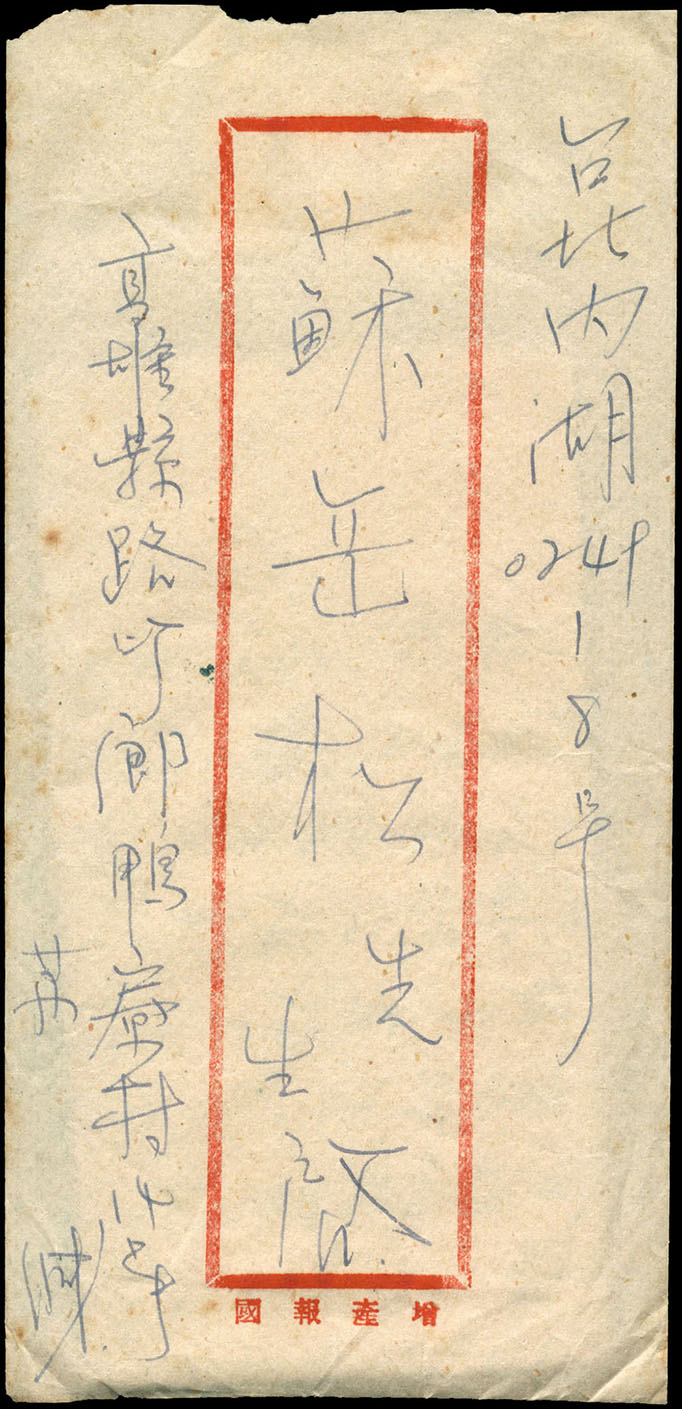 台北內湖0241 8号
蘇岳松先生啟
高雄縣路竹鄉鴨寮村14号
蘇 
增產報國